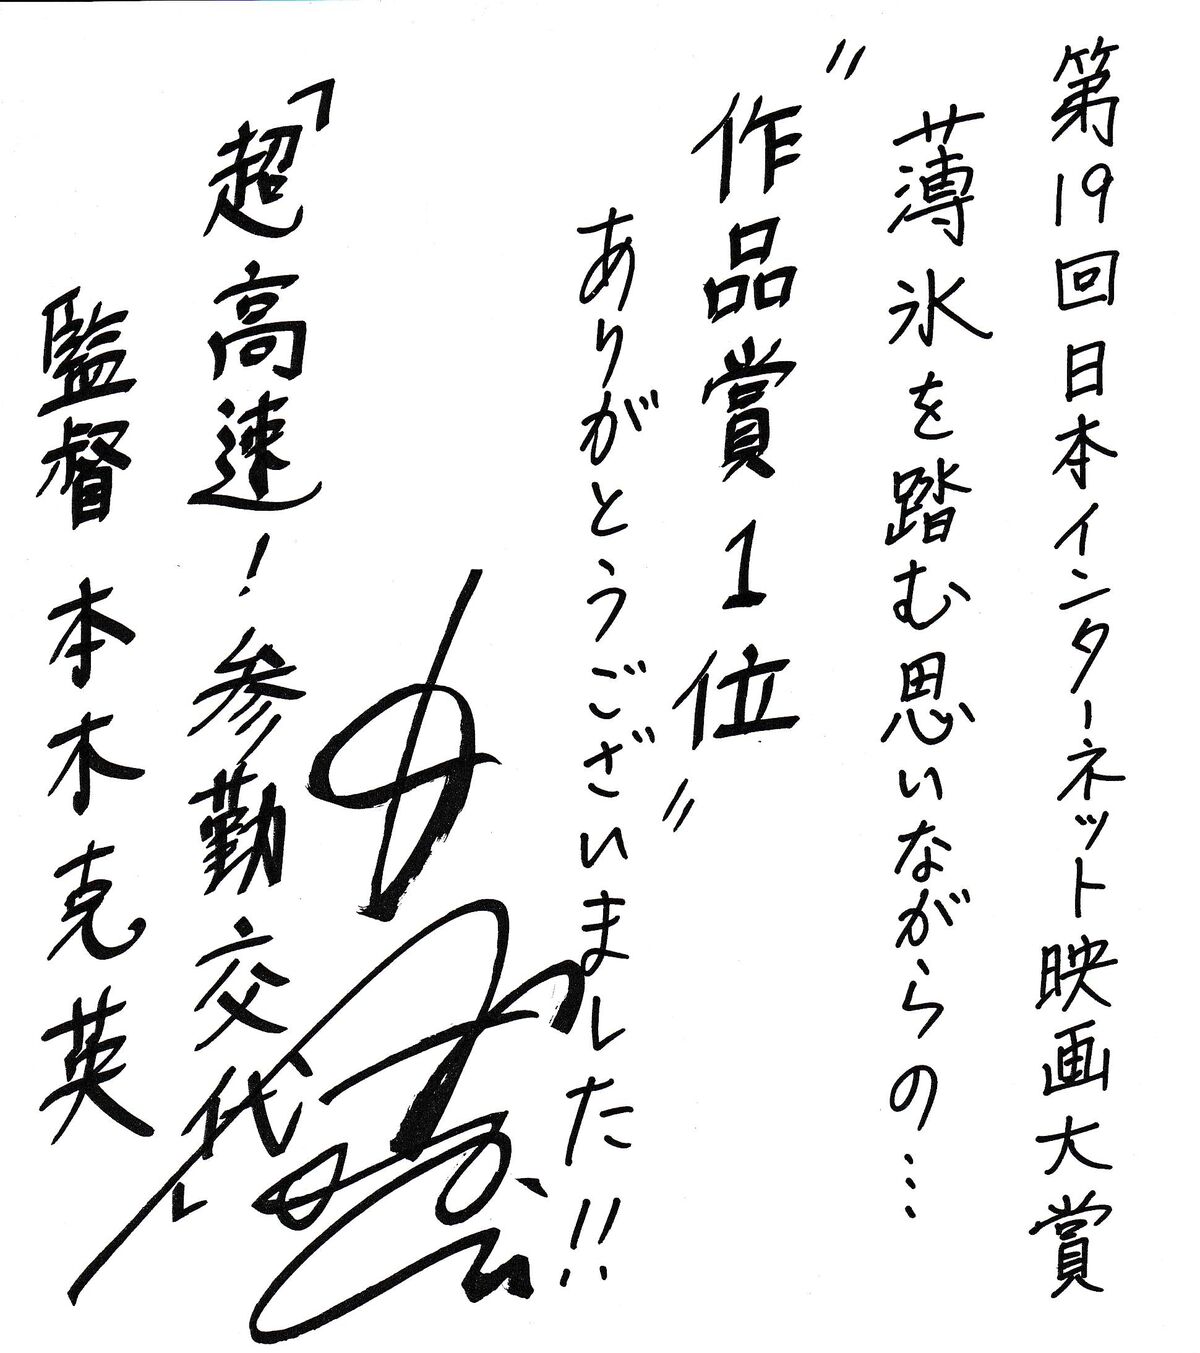 第19回日本インターネット映画大賞
薄氷を踏む思いながらの…
〝作品賞1位〟
ありがとうございました!!
「超高速!参勤交代」
監督 本木克英